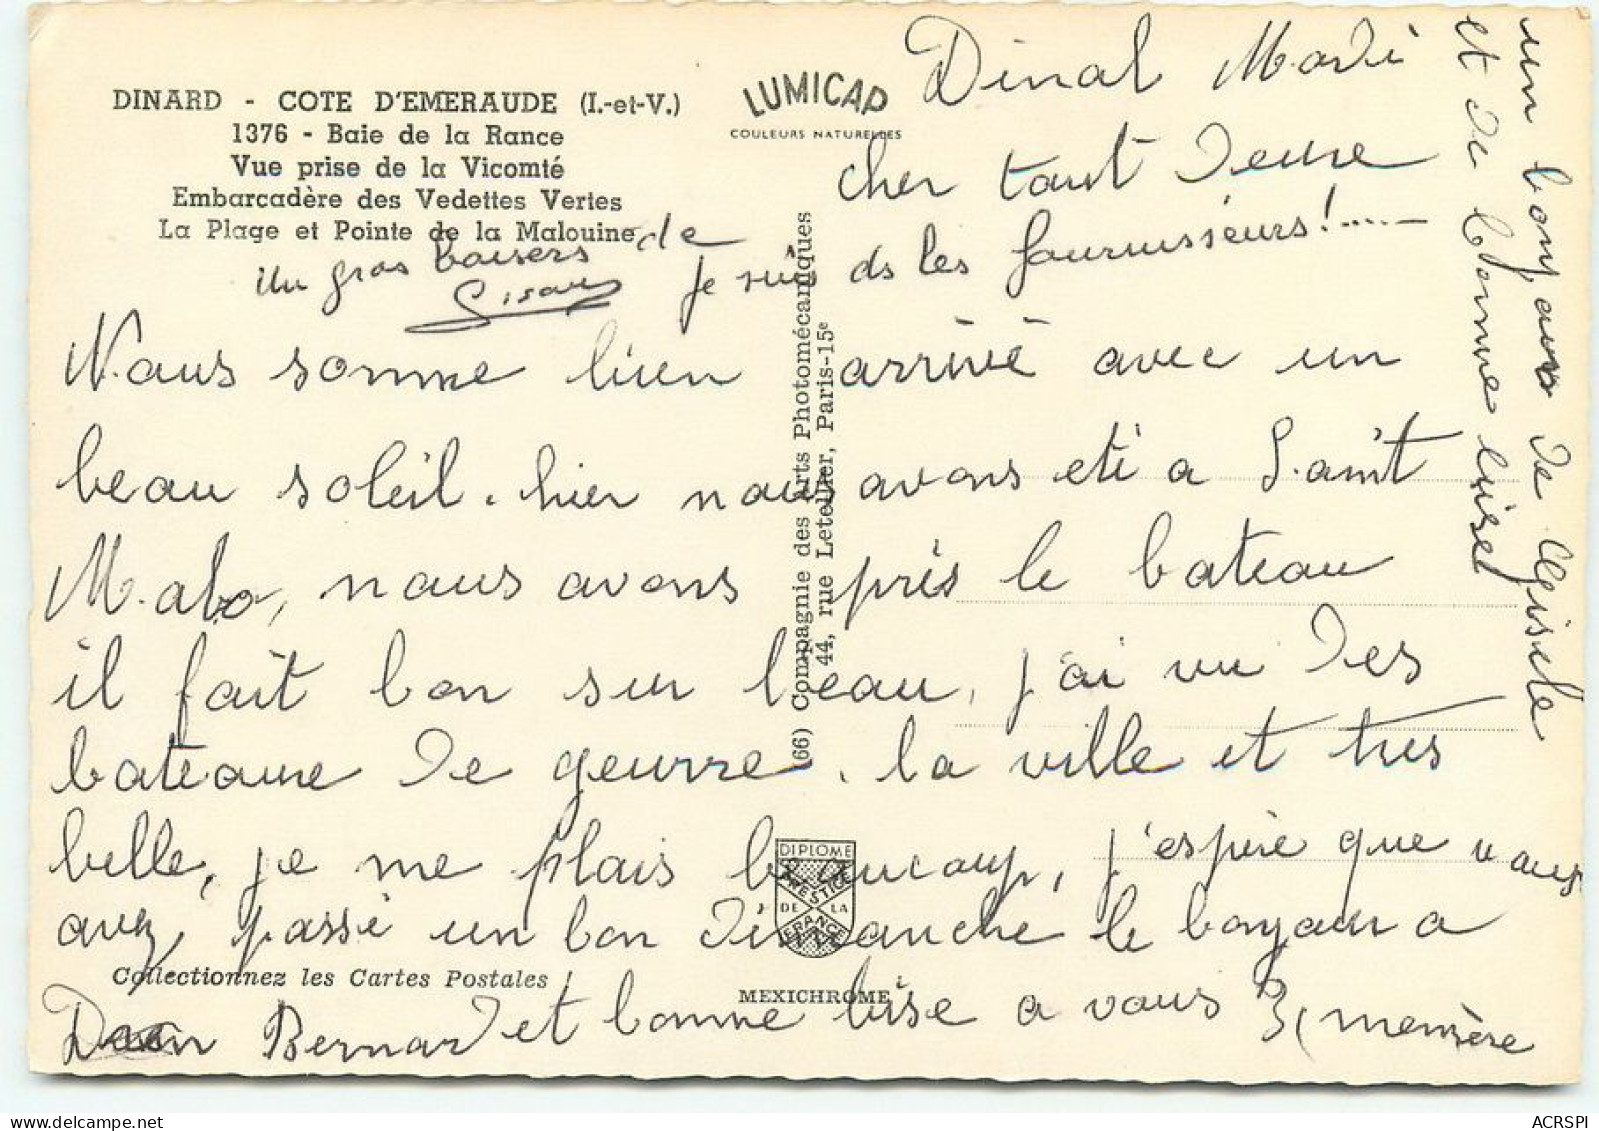 DINARD - COTE D'EMERAUDE (I.-et-V.)
1376 - Baie de la Rance
Vue prise de la Vicomté
Embarcadère des Vedettes Vertes
La Plage et Pointe de la Malouine
LUMICAP
COULEURS NATURELLES
Dinal Mardi
cher tout
je suis ds les fournisseurs!......
un gros baisers de
Nous somme bien arrivé avec un
beau soleil. hier nous avons eté a Saint
Malo, nous avons pris le bateau
il fait bon sur l'eau, j'ai vu des
bateaux de geurre. la ville et tres
belle, je me plais beaucoup, j'espère que vous
avez passé un bon dimanche le bonjour a
Bernard et bonne bise a vous 3, memère
un bonjour de Gisèle
et de bonne bises
66) Compagnie des Arts Photomécaniques
44, rue Letellier, Paris-15e
DIPLOME
PRESTIGE
DE LA
FRANCE
Collectionnez les Cartes Postales
MEXICHROME
ACRSPI